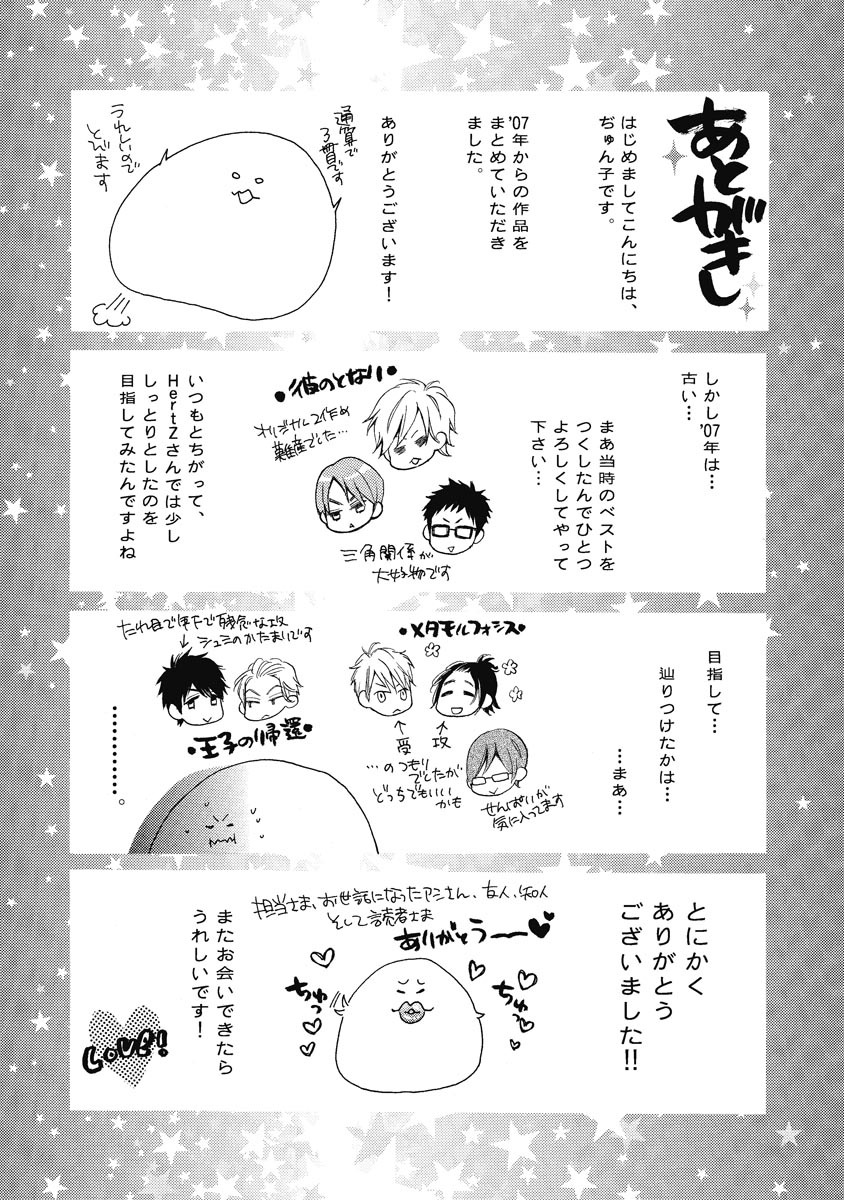 あとがき
はじめましてこんにちは、
ぢゅん子です。
'07年からの作品を
まとめていただき
ました。
ありがとうございます!
通算で
3冊目です
うれしいので
とびます
しかし'07年は…
古い…
まあ当時のベストを
つくしたんでひとつ
よろしくしてやって
下さい…
彼のとなり
オリジナル2作め
難産でした…
三角関係が
大好物です
いつもとちがって、
HertZさんでは少し
しっとりとしたのを
目指してみたんですよね
目指して…
辿りつけたかは…
…まあ…
メタモルフォシス
攻
受
…のつもり
でしたが
どっちでもいい
かも
せんぱいが
気に入ってます
たれ目で年下で残念な攻
シュミのかたまりです
王子の帰還
………。
とにかく
ありがとう
ございました!!
担当さま、お世話になったアシさん、友人、知人
そして読者さま
ありがとうー
ちゅっ
ちゅっ
またお会いできたら
うれしいです!
LOVE!